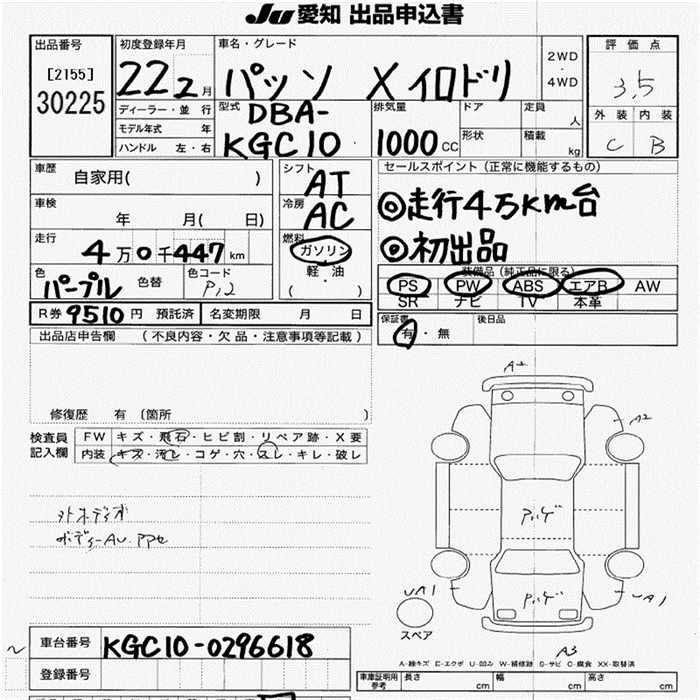 JU 愛知 出品申込書
出品番号
[2155]
30225
初度登録年月
22 2 月
車名・グレード
パッソ X イロドリ
2WD
・
4WD
評価点
3.5
外装 内装
C B
ディーラー・並行
モデル年式 年
ハンドル 左・右
型式
DBA-
KGC10
排気量
1000 CC
ドア
形状
定員
人
積載
kg
車歴
自家用( )
車検
年 月( 日)
走行
4万0千447km
色
パープル
色替
色コード
P12
シフト
AT
冷房
AC
燃料
ガソリン
・
軽油
( )
セールスポイント (正常に機能するもの)
◎走行4万km台
◎初出品
装備品 (純正品に限る)
PS PW ABS エアB AW
SR ナビ TV 本革
保証書
有・無
後日品
R券 9510 円 預託済
名変期限 月 日
出品店申告欄 (不良内容・欠品・注意事項等記載)
修復歴 有 (箇所 )
検査員
記入欄
FW キズ・飛石・ヒビ割・リペア跡・X要
内装 キズ・汚レ・コゲ・穴・スレ・キレ・破レ
A2
A2
UA1
UA1
A3
スペア
A-線キズ E-エクボ U-凹み W-補修跡 S-サビ C-腐食 XX-取替済
車台番号
KGC10-0296618
登録番号
車庫証明用
参考
長さ cm 幅 cm 高さ cm